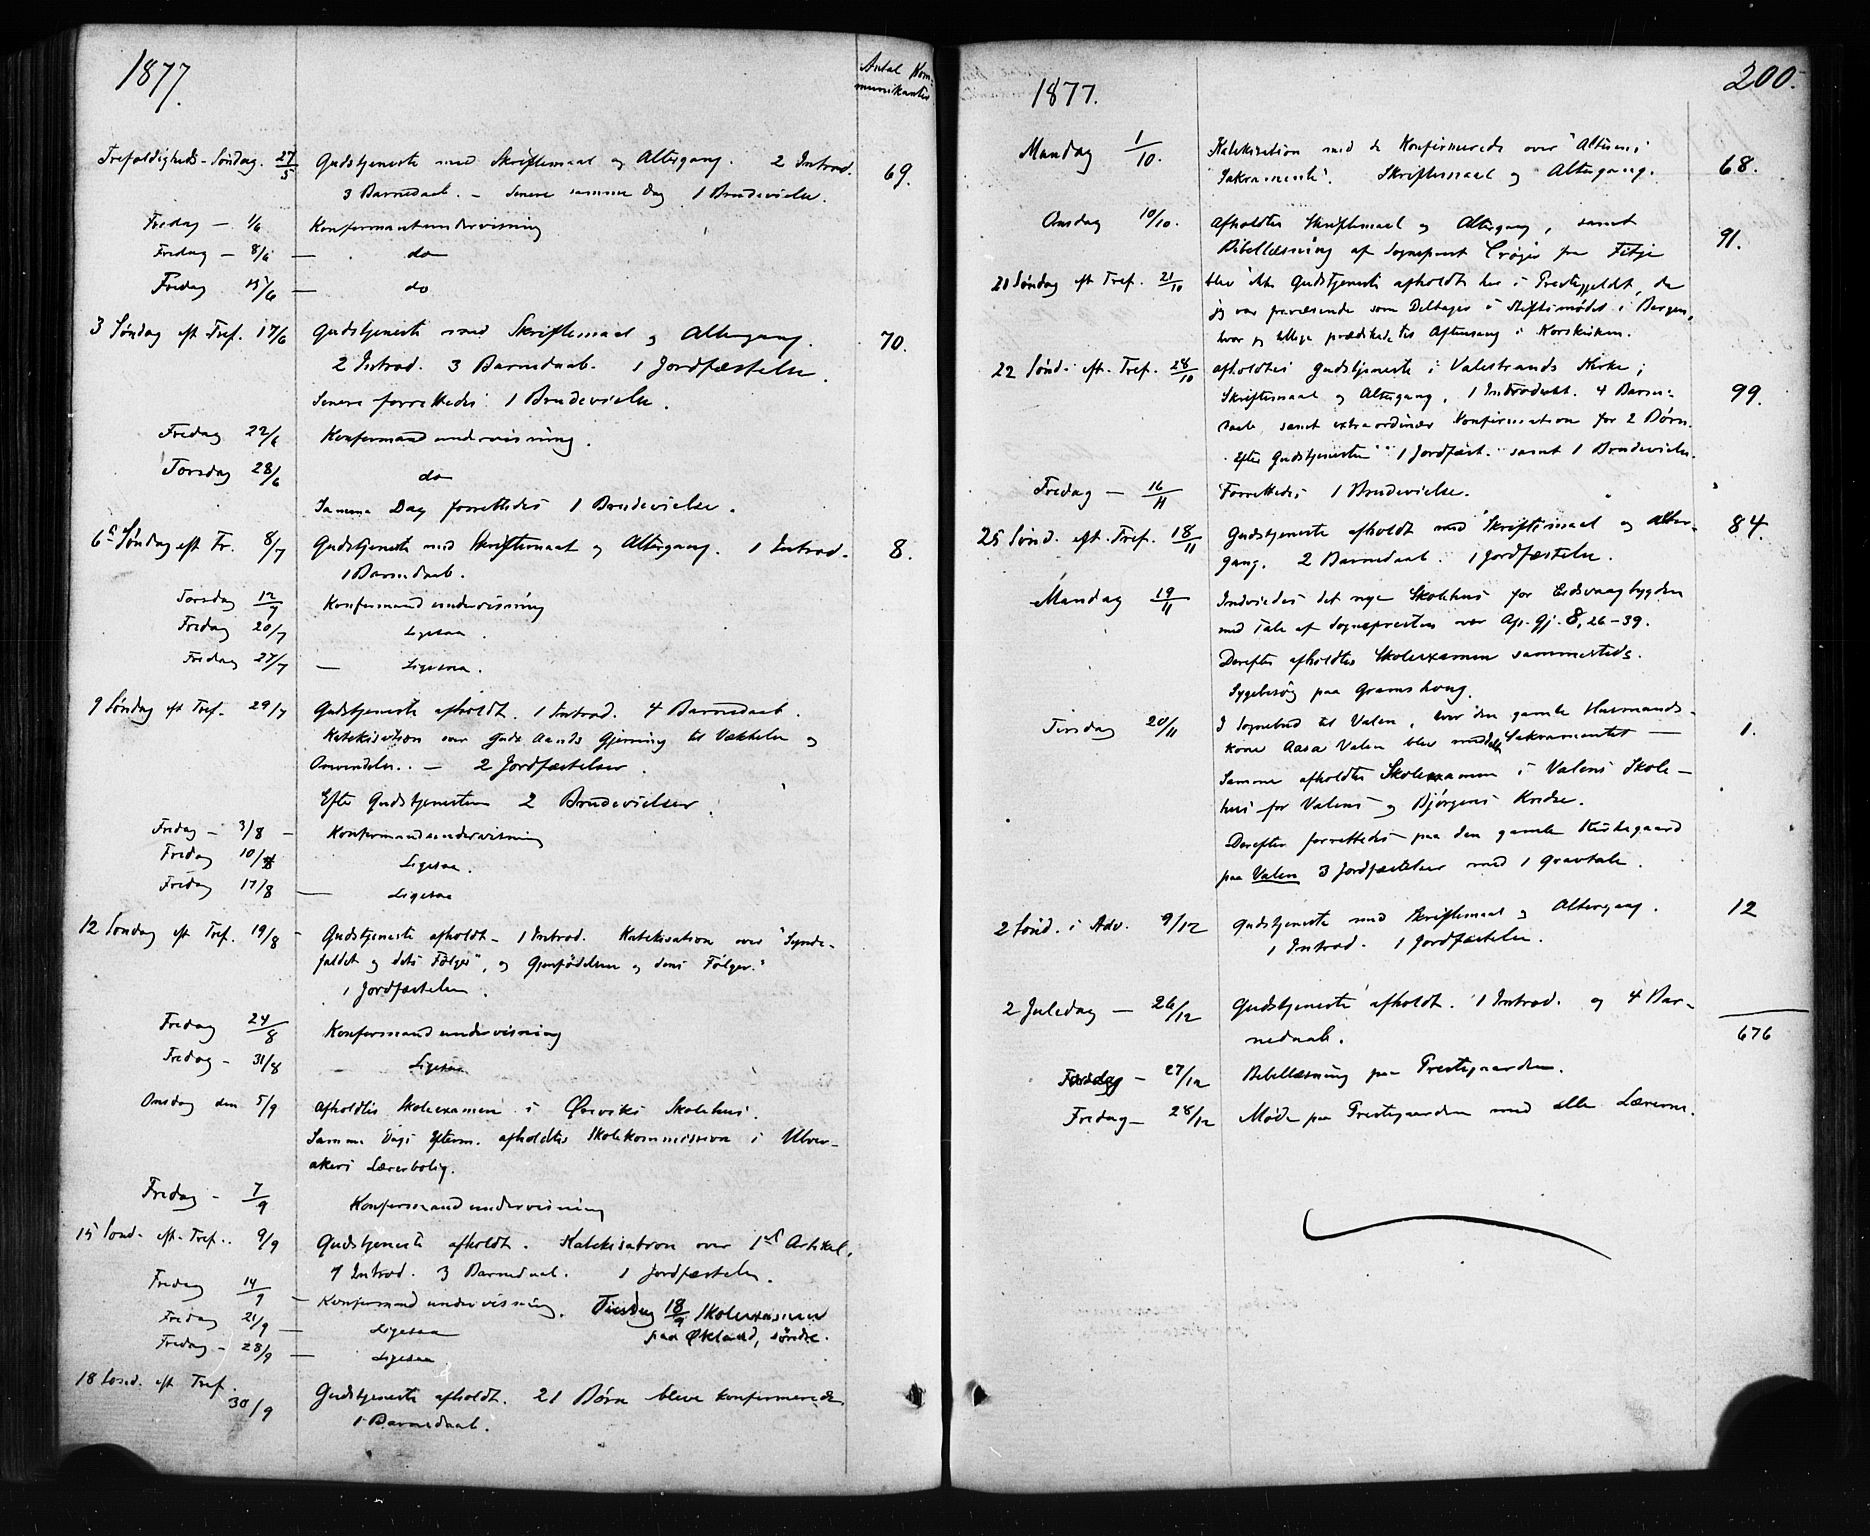 1877.
Antal Kom-
munikanter
Trefoldigheds-Søndag. 27/5 Gudstjeneste med Skriftemaal og Altergang. 2 Introd. 69.
3 Barnedaab. – Senere samme Dag 1 Brudevielse.
Fredag – 1/6 Konfirmantundervisning
Fredag – 8/6 – do
Fredag 15/6 – do
3 Søndag eft Tref. 17/6 Gudstjeneste med Skriftemaal og Altergang. 70.
2 Introd. 3 Barnedaab. 1 Jordfæstelse.
Senere forrettedes 1 Brudevielse.
Fredag 22/6 Konfirmandundervisning.
Torsdag 28/6 do
Samme Dag forrettedes 1 Brudevielse.
6te Søndag eft Tr. 8/7 Gudstjeneste med Skriftemaal og Altergang. 1 Introd. 8.
1 Barnedaab.
Torsdag 12/7 Konfirmandundervisning
Fredag 20/7 Ligesaa.
Fredag 27/7 – Ligesaa.
9 Søndag eft Tref. 29/7 Gudstjeneste afholdt. 1 Introd. 4 Barnedaab.
Katekisation over Guds Aands Gjerning til Vækkelse og
Omvendelse. – 2 Jordfæstelser.
Efter Gudstjenesten 2 Brudevielser.
Fredag – 3/8 – Konfirmandundervisning
Fredag 10/8 Ligesaa.
Fredag 17/8 – Ligesaa
12 Søndag eft Tref. 19/8 – Gudstjeneste afholdt – 1 Introd. Katekisation over "Synde-
faldet og dets Følger", og Gjenfødelsen og dens Følger."
1 Jordfæstelse.
Fredag 24/8 Konfirmandundervisning
Fredag – 31/8 Ligesaa
Onsdag den 5/9 Afholdtes Skoleexamen i Skolehus.
Samme Dags Efterm. afholdtes Skolekommission i Ulver-
akers Lærerbolig.
Fredag – 7/9 Konfirmandundervisning
15 Sønd. eft. Tref. 9/9 Gudstjeneste afholdt. Katekisation over 1ste Artikel.
1 Introd. 3 Barnedaab. 1 Jordfæstelse.
Fredag 14/9 – Konfirmandundervisning. Tirsdag 18/9 Skoleexamen
Fredag 21/9 – Ligesaa paa Økland, søndre.
Fredag – 28/9 – Ligesaa
18 Sønd. eft Tref.
30/9 Gudstjeneste afholdt. 21 Børn bleve konfirmerede
1 Barnedaab.
1877.
200.
Mandag 1/10. Katekisation med de Konfirmerede over "Alterens
Sakramente". Skriftemaal og Altergang. 68.
Onsdag 10/10. Afholdtes Skriftemaal og Altergang, samt
Bibellæsning af Sognepræst Crøger fra Fitje 91.
21 Søndag eft Tref. 21/10 blev ikke Gudstjeneste afholdt her i Prestegjeldet, da
jeg var fraværende som Deltager i Stiftsmødet i Bergen,
hvor jeg tillige prædikede til Aftensang i Korskirken.
22 Sønd. eft. Tref. 28/10 afholdtes Gudstjeneste i Valestrands Kirke;
Skriftemaal og Altergang, 1 Introdukt. 4 Barne- 99.
daab, samt extraordinær Konfirmation for 2 Børn.
Efter Gudstjenesten 1 Jordfæst. samt 1 Brudevielse.
Fredag – 16/11 Forrettedes 1 Brudevielse.
25 Sønd. eft. Tref. 18/11 Gudstjeneste afholdt med Skriftemaal og Alter- 84.
gang. 2 Barnedaab. 1 Jordfæstelse.
Mandag 19/11 Indviedes det nye Skolehus for Eidsvaagbygden
med Tale af Sognepresten over Ap. Gj. 8, 26–39.
Derefter afholdtes Skoleexamen sammesteds.
Sygebesøg paa Gramshoug.
Tirsdag 20/11 I Sognebud til Valen, hvor den gamle Husmands-
kone Aasa Valen blev meddelt Sakramentet – 1.
Samme afholdtes Skoleexamen i Valens Skole-
hus for Valens og Bjørgens Kredse.
Derefter forrettedes paa den gamle Kirkegaard
paa Valen 3 Jordfæstelser med 1 Gravtale.
2 Sønd. i Adv. 9/12 Gudstjeneste med Skriftemaal og Altergang. 12
1 Introd. 1 Jordfæstelse.
2 Juledag – 26/12 Gudstjeneste afholdt. 1 Introd. og 4 Bar-
nedaab. 676
Torsdag – 27/12 Bibellæsning paa Prestegaarden.
Fredag – 28/12 Møde paa Prestegaarden med alle Lærerne.